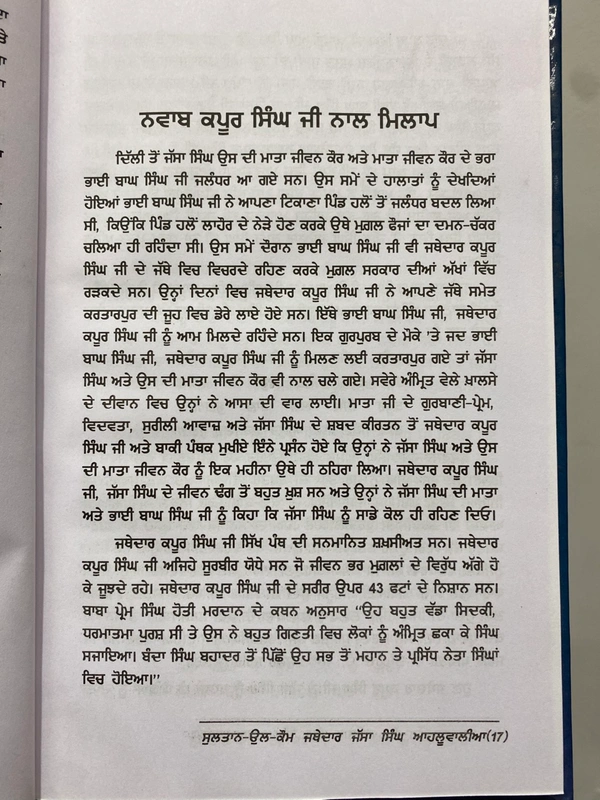 ਨਵਾਬ ਕਪੂਰ ਸਿੰਘ ਜੀ ਨਾਲ ਮਿਲਾਪ
ਦਿੱਲੀ ਤੋਂ ਜੱਸਾ ਸਿੰਘ ਉਸ ਦੀ ਮਾਤਾ ਜੀਵਨ ਕੌਰ ਅਤੇ ਮਾਤਾ ਜੀਵਨ ਕੌਰ ਦੇ ਭਰਾ
ਭਾਈ ਬਾਘ ਸਿੰਘ ਜੀ ਜਲੰਧਰ ਆ ਗਏ ਸਨ। ਉਸ ਸਮੇਂ ਦੇ ਹਾਲਾਤਾਂ ਨੂੰ ਦੇਖਦਿਆਂ
ਹੋਇਆਂ ਭਾਈ ਬਾਘ ਸਿੰਘ ਜੀ ਨੇ ਆਪਣਾ ਟਿਕਾਣਾ ਪਿੰਡ ਹਲੋਂ ਤੋਂ ਜਲੰਧਰ ਬਦਲ ਲਿਆ
ਸੀ, ਕਿਉਂਕਿ ਪਿੰਡ ਹਲੋਂ ਲਾਹੌਰ ਦੇ ਨੇੜੇ ਹੋਣ ਕਰਕੇ ਉਥੇ ਮੁਗ਼ਲ ਫੌਜਾਂ ਦਾ ਦਮਨ-ਚੱਕਰ
ਚਲਿਆ ਹੀ ਰਹਿੰਦਾ ਸੀ। ਉਸ ਸਮੇਂ ਦੌਰਾਨ ਭਾਈ ਬਾਘ ਸਿੰਘ ਜੀ ਵੀ ਜਥੇਦਾਰ ਕਪੂਰ
ਸਿੰਘ ਜੀ ਦੇ ਜੱਥੇ ਵਿਚ ਵਿਚਰਦੇ ਰਹਿਣ ਕਰਕੇ ਮੁਗ਼ਲ ਸਰਕਾਰ ਦੀਆਂ ਅੱਖਾਂ ਵਿੱਚ
ਰੜਕਦੇ ਸਨ। ਉਨ੍ਹਾਂ ਦਿਨਾਂ ਵਿਚ ਜਥੇਦਾਰ ਕਪੂਰ ਸਿੰਘ ਜੀ ਨੇ ਆਪਣੇ ਜੱਥੇ ਸਮੇਤ
ਕਰਤਾਰਪੁਰ ਦੀ ਜੂਹ ਵਿਚ ਡੇਰੇ ਲਾਏ ਹੋਏ ਸਨ। ਇੱਥੇ ਭਾਈ ਬਾਘ ਸਿੰਘ ਜੀ, ਜਥੇਦਾਰ
ਕਪੂਰ ਸਿੰਘ ਜੀ ਨੂੰ ਆਮ ਮਿਲਦੇ ਰਹਿੰਦੇ ਸਨ। ਇਕ ਗੁਰਪੁਰਬ ਦੇ ਮੌਕੇ 'ਤੇ ਜਦ ਭਾਈ
ਬਾਘ ਸਿੰਘ ਜੀ, ਜਥੇਦਾਰ ਕਪੂਰ ਸਿੰਘ ਜੀ ਨੂੰ ਮਿਲਣ ਲਈ ਕਰਤਾਰਪੁਰ ਗਏ ਤਾਂ ਜੱਸਾ
ਸਿੰਘ ਅਤੇ ਉਸ ਦੀ ਮਾਤਾ ਜੀਵਨ ਕੌਰ ਵੀ ਨਾਲ ਚਲੇ ਗਏ। ਸਵੇਰੇ ਅੰਮ੍ਰਿਤ ਵੇਲੇ ਖ਼ਾਲਸੇ
ਦੇ ਦੀਵਾਨ ਵਿਚ ਉਨ੍ਹਾਂ ਨੇ ਆਸਾ ਦੀ ਵਾਰ ਲਾਈ। ਮਾਤਾ ਜੀ ਦੇ ਗੁਰਬਾਣੀ-ਪ੍ਰੇਮ,
ਵਿਦਵਤਾ, ਸੁਰੀਲੀ ਆਵਾਜ਼ ਅਤੇ ਜੱਸਾ ਸਿੰਘ ਦੇ ਸ਼ਬਦ ਕੀਰਤਨ ਤੋਂ ਜਥੇਦਾਰ ਕਪੂਰ
ਸਿੰਘ ਜੀ ਅਤੇ ਬਾਕੀ ਪੰਥਕ ਮੁਖੀਏ ਇੰਨੇ ਪ੍ਰਸੰਨ ਹੋਏ ਕਿ ਉਨ੍ਹਾਂ ਨੇ ਜੱਸਾ ਸਿੰਘ ਅਤੇ ਉਸ
ਦੀ ਮਾਤਾ ਜੀਵਨ ਕੌਰ ਨੂੰ ਇਕ ਮਹੀਨਾ ਉਥੇ ਹੀ ਠਹਿਰਾ ਲਿਆ। ਜਥੇਦਾਰ ਕਪੂਰ ਸਿੰਘ
ਜੀ, ਜੱਸਾ ਸਿੰਘ ਦੇ ਜੀਵਨ ਢੰਗ ਤੋਂ ਬਹੁਤ ਖ਼ੁਸ਼ ਸਨ ਅਤੇ ਉਨ੍ਹਾਂ ਨੇ ਜੱਸਾ ਸਿੰਘ ਦੀ ਮਾਤਾ
ਅਤੇ ਭਾਈ ਬਾਘ ਸਿੰਘ ਜੀ ਨੂੰ ਕਿਹਾ ਕਿ ਜੱਸਾ ਸਿੰਘ ਨੂੰ ਸਾਡੇ ਕੋਲ ਹੀ ਰਹਿਣ ਦਿਓ।
ਜਥੇਦਾਰ ਕਪੂਰ ਸਿੰਘ ਜੀ ਸਿੱਖ ਪੰਥ ਦੀ ਸਨਮਾਨਿਤ ਸ਼ਖ਼ਸੀਅਤ ਸਨ। ਜਥੇਦਾਰ
ਕਪੂਰ ਸਿੰਘ ਜੀ ਅਜਿਹੇ ਸੂਰਬੀਰ ਯੋਧੇ ਸਨ ਜੋ ਜੀਵਨ ਭਰ ਮੁਗ਼ਲਾਂ ਦੇ ਵਿਰੁੱਧ ਅੱਗੇ ਹੋ
ਕੇ ਜੂਝਦੇ ਰਹੇ। ਜਥੇਦਾਰ ਕਪੂਰ ਸਿੰਘ ਜੀ ਦੇ ਸਰੀਰ ਉਪਰ 43 ਫਟਾਂ ਦੇ ਨਿਸ਼ਾਨ ਸਨ।
ਬਾਬਾ ਪ੍ਰੇਮ ਸਿੰਘ ਹੋਤੀ ਮਰਦਾਨ ਦੇ ਕਥਨ ਅਨੁਸਾਰ "ਉਹ ਬਹੁਤ ਵੱਡਾ ਸਿਦਕੀ,
ਧਰਮਾਤਮਾ ਪੁਰਸ਼ ਸੀ ਤੇ ਉਸ ਨੇ ਬਹੁਤ ਗਿਣਤੀ ਵਿਚ ਲੋਕਾਂ ਨੂੰ ਅੰਮ੍ਰਿਤ ਛਕਾ ਕੇ ਸਿੰਘ
ਸਜਾਇਆ। ਬੰਦਾ ਸਿੰਘ ਬਹਾਦਰ ਤੋਂ ਪਿੱਛੋਂ ਉਹ ਸਭ ਤੋਂ ਮਹਾਨ ਤੇ ਪ੍ਰਸਿੱਧ ਨੇਤਾ ਸਿੰਘਾਂ
ਵਿਚ ਹੋਇਆ।"
ਸੁਲਤਾਨ-ਉਲ-ਕੌਮ ਜਥੇਦਾਰ ਜੱਸਾ ਸਿੰਘ ਆਹਲੂਵਾਲੀਆ(17)